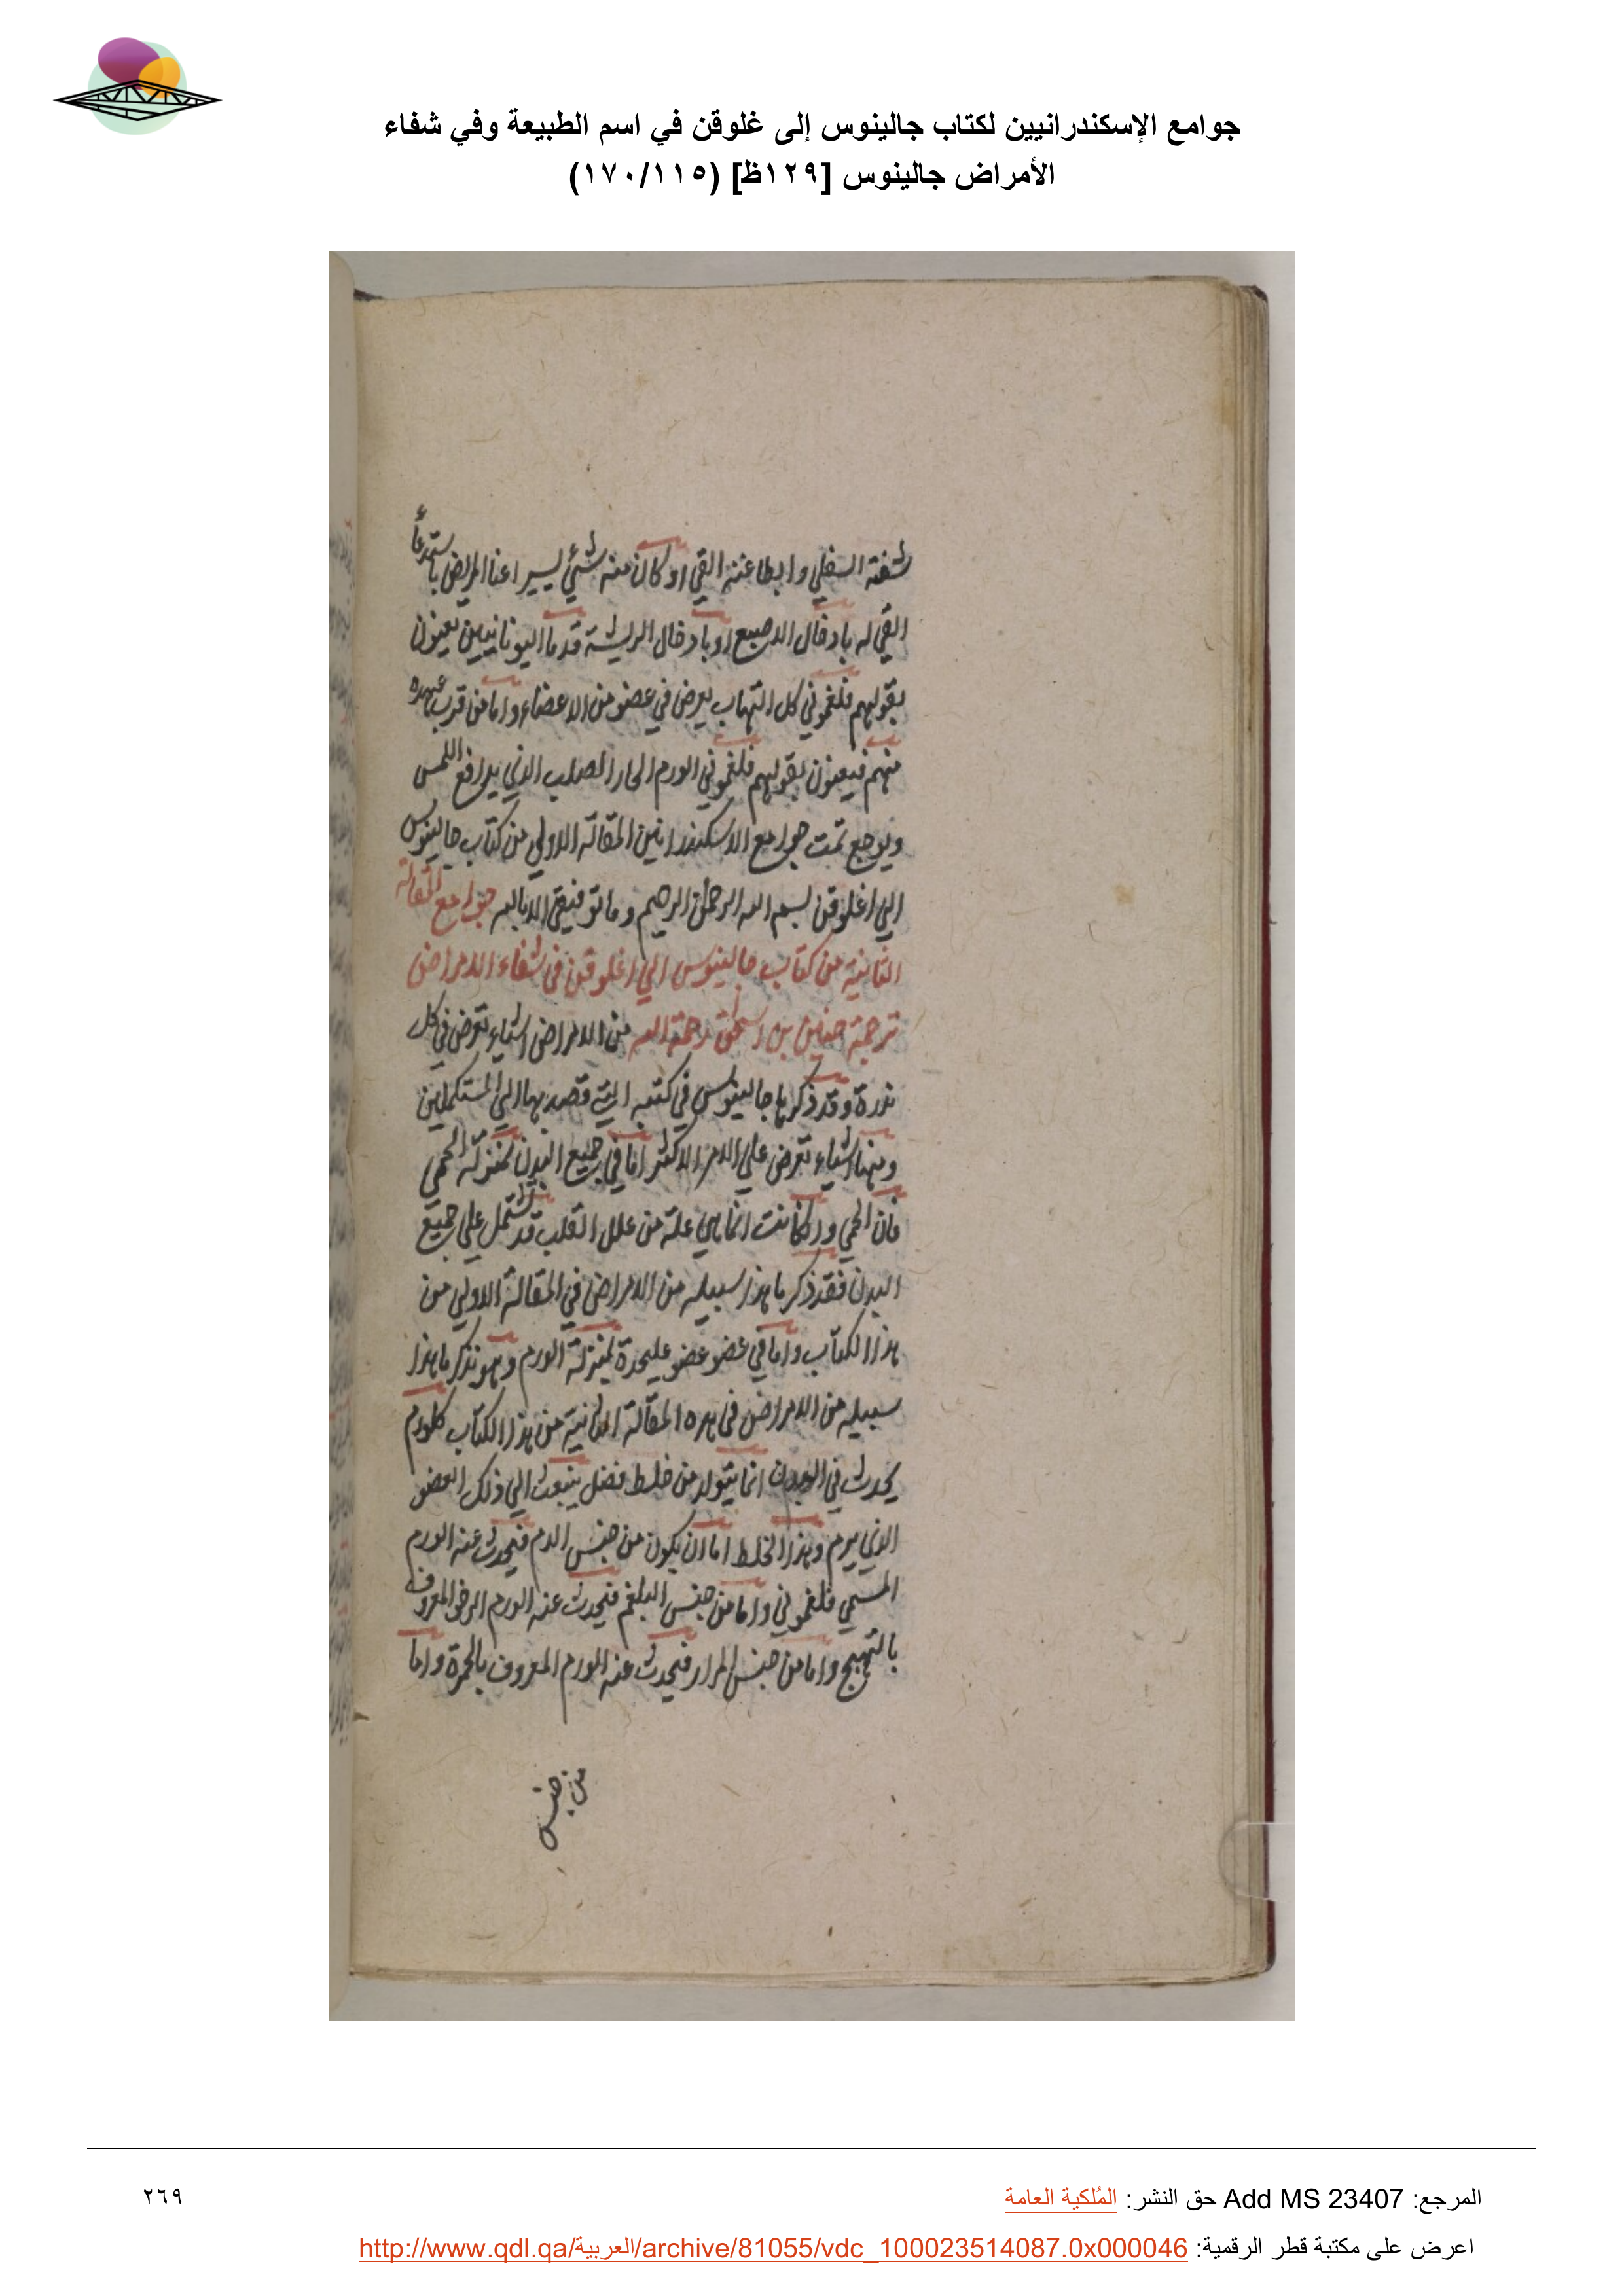 جوامع الإسكندرانيين لكتاب جالينوس إلى غلوقن في اسم الطبيعة وفي شفاء
الأمراض جالينوس [١٢٩ظ] (١٧٠/١١٥)
شفته السفلي وابطا عنه القي او كان منه شئ يسير اعنا المريض باستدعاء
القي له بادخال الاصبع او بادخال الريشة قدما اليونانيين يعنون
بقولهم فلغموني كل التهاب يعرض في عضو من الاعضاء واما من قرب عهده
منهم فيعنون بقولهم فلغموني الورم الحار الصلب الذي يدافع اللمس
ويوجع تمت جوامع الاسكندرانين المقالة الاولي من كتاب جالينوس
الي اغلوقن بسم الله الرحمن الرحيم وما توفيقي الا بالله جوامع المقالة
الثانية من كتاب جالينوس الي اغلوقن في شفاء الامراض
ترجمة حنين بن اسحق رحمة الله من الامراض اشياء تعرض في كل
ندرة وقد ذكرها جالينوس في كتبه التي قصد بها الي المستكملين
ومنها اشياء تعرض علي الامر الاكثر اما في جميع البدن بمنزلة الحمي
فان الحمي وان كانت انما هي علة من علل القلب قد تشتمل علي جميع
البدن فقد ذكر ما هذا سبيله من الامراض في المقالة الاولي من
هذا الكتاب واما في عضو عضو عليحدة بمنزلة الورم وهو نذكر ما هذا
سبيله من الامراض في هذه المقالة الثانية من هذا الكتاب كل ورم
يحدث في البدن انما يتولد من خلط فضل ينبعث الي ذلك العضو
الذي يرم وهذا الخلط اما ان يكون من جنس الدم فيحدث عنه الورم
المسمي فلغموني واما من جنس البلغم فيحدث عنه الورم الرخو المعروف
بالتهيج واما من جنس المرار فيحدث عنه الورم المعروف بالحمرة واما
من جنس
المرجع: Add MS 23407 حق النشر: المُلكية العامة
٢٦٩
اعرض على مكتبة قطر الرقمية: http://www.qdl.qa/العربية/archive/81055/vdc_100023514087.0x000046